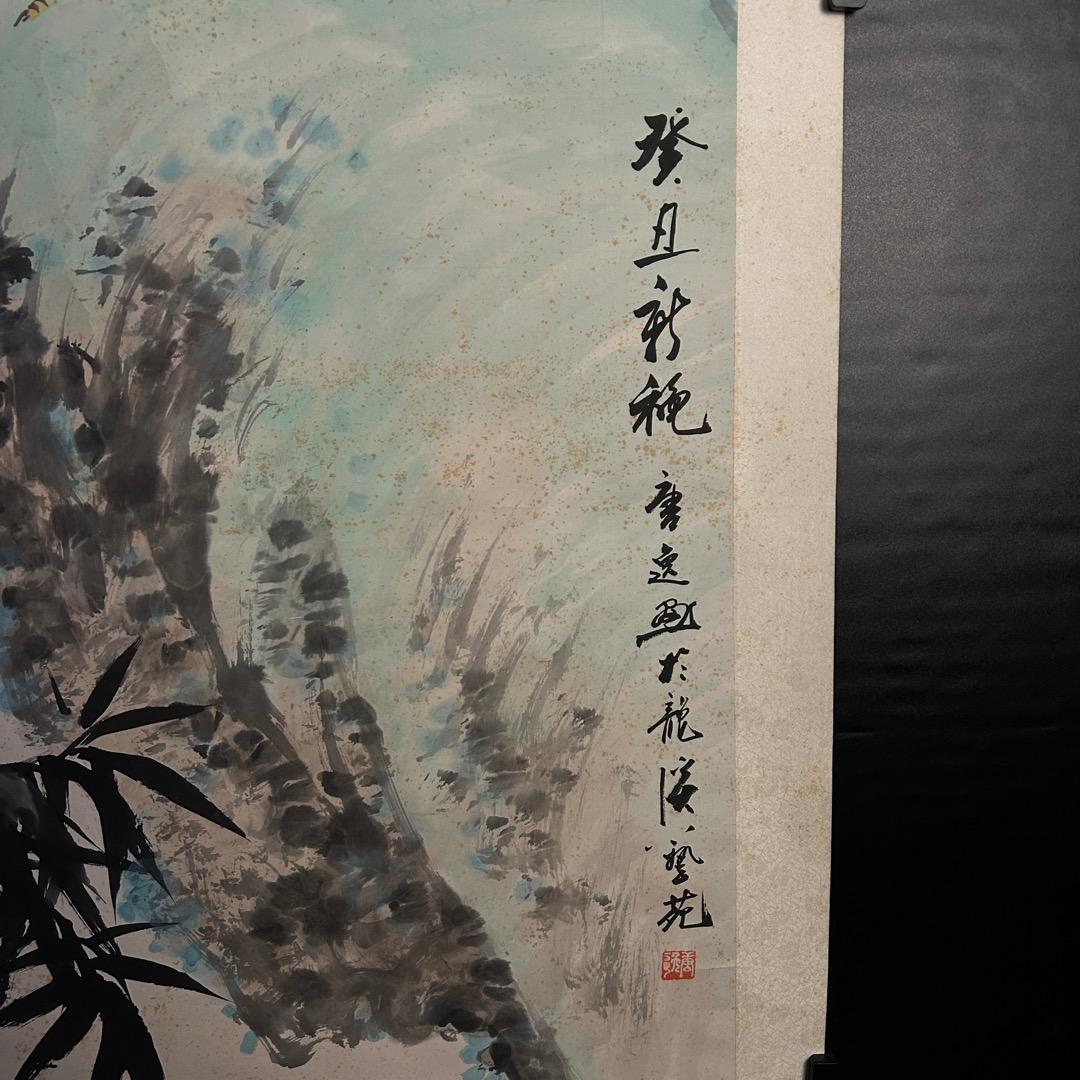 癸丑新穐 唐逸畫於龍溪藝苑
唐逸